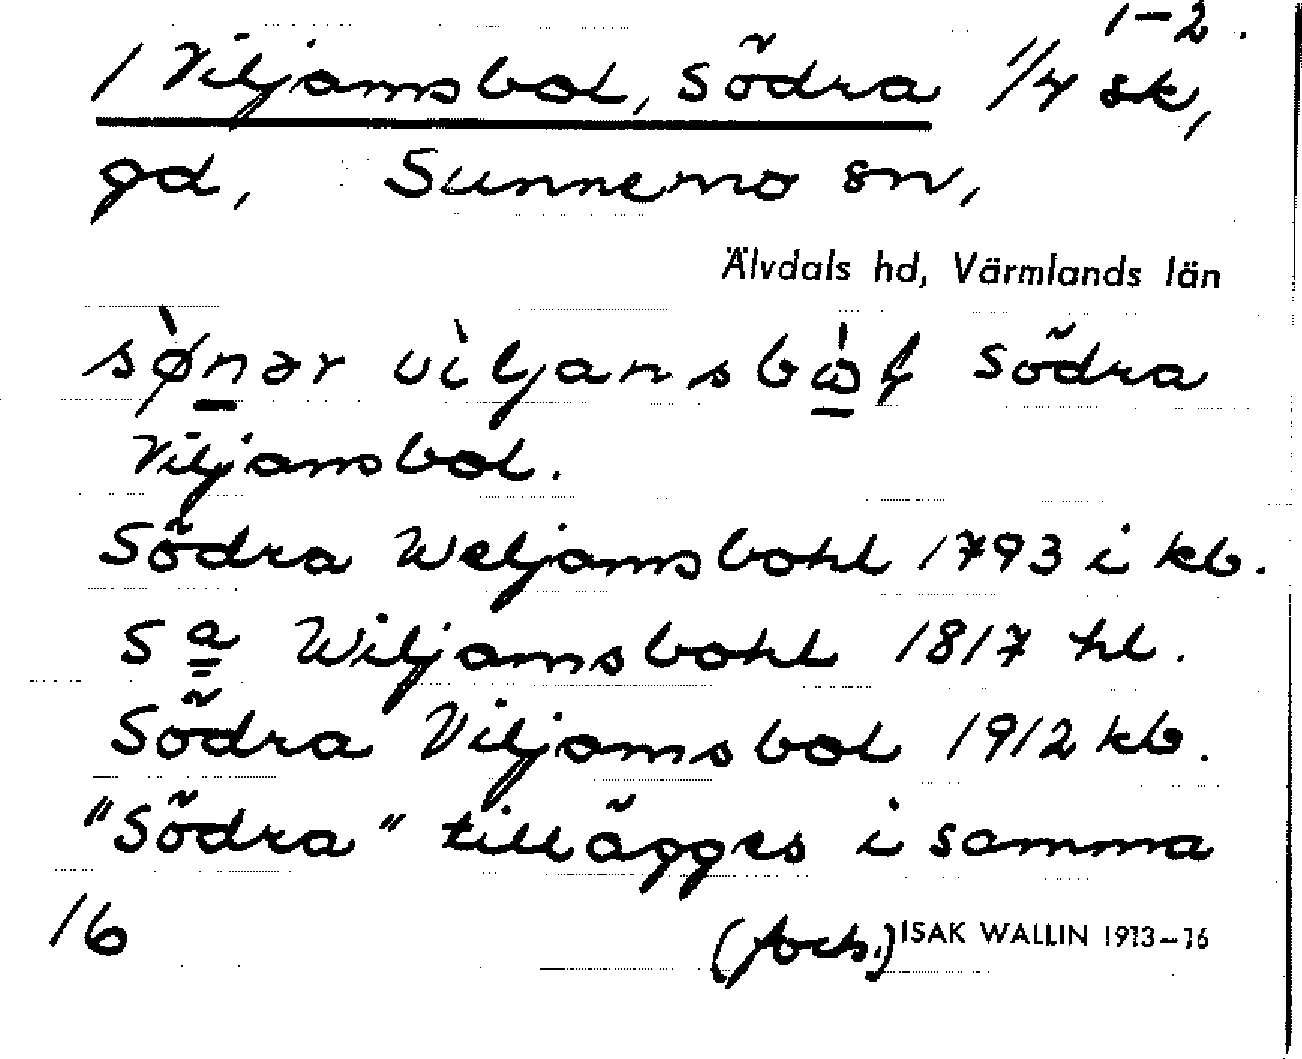 1-2.
1 Viljamsbol, Södra 1/4 sk,
gd, Sunnemo sn,
Älvdals hd, Värmlands län
sø̀nər vìljansbὼɫ Södra
Viljamsbol.
Södra Weljamsbohl 1793 i kb.
Sa Wiljamsbohl 1817 hl.
Södra Viljamsbol 1912 kb.
"Södra" tillägges i samma
16 (forts.) ISAK WALLIN 1913-16